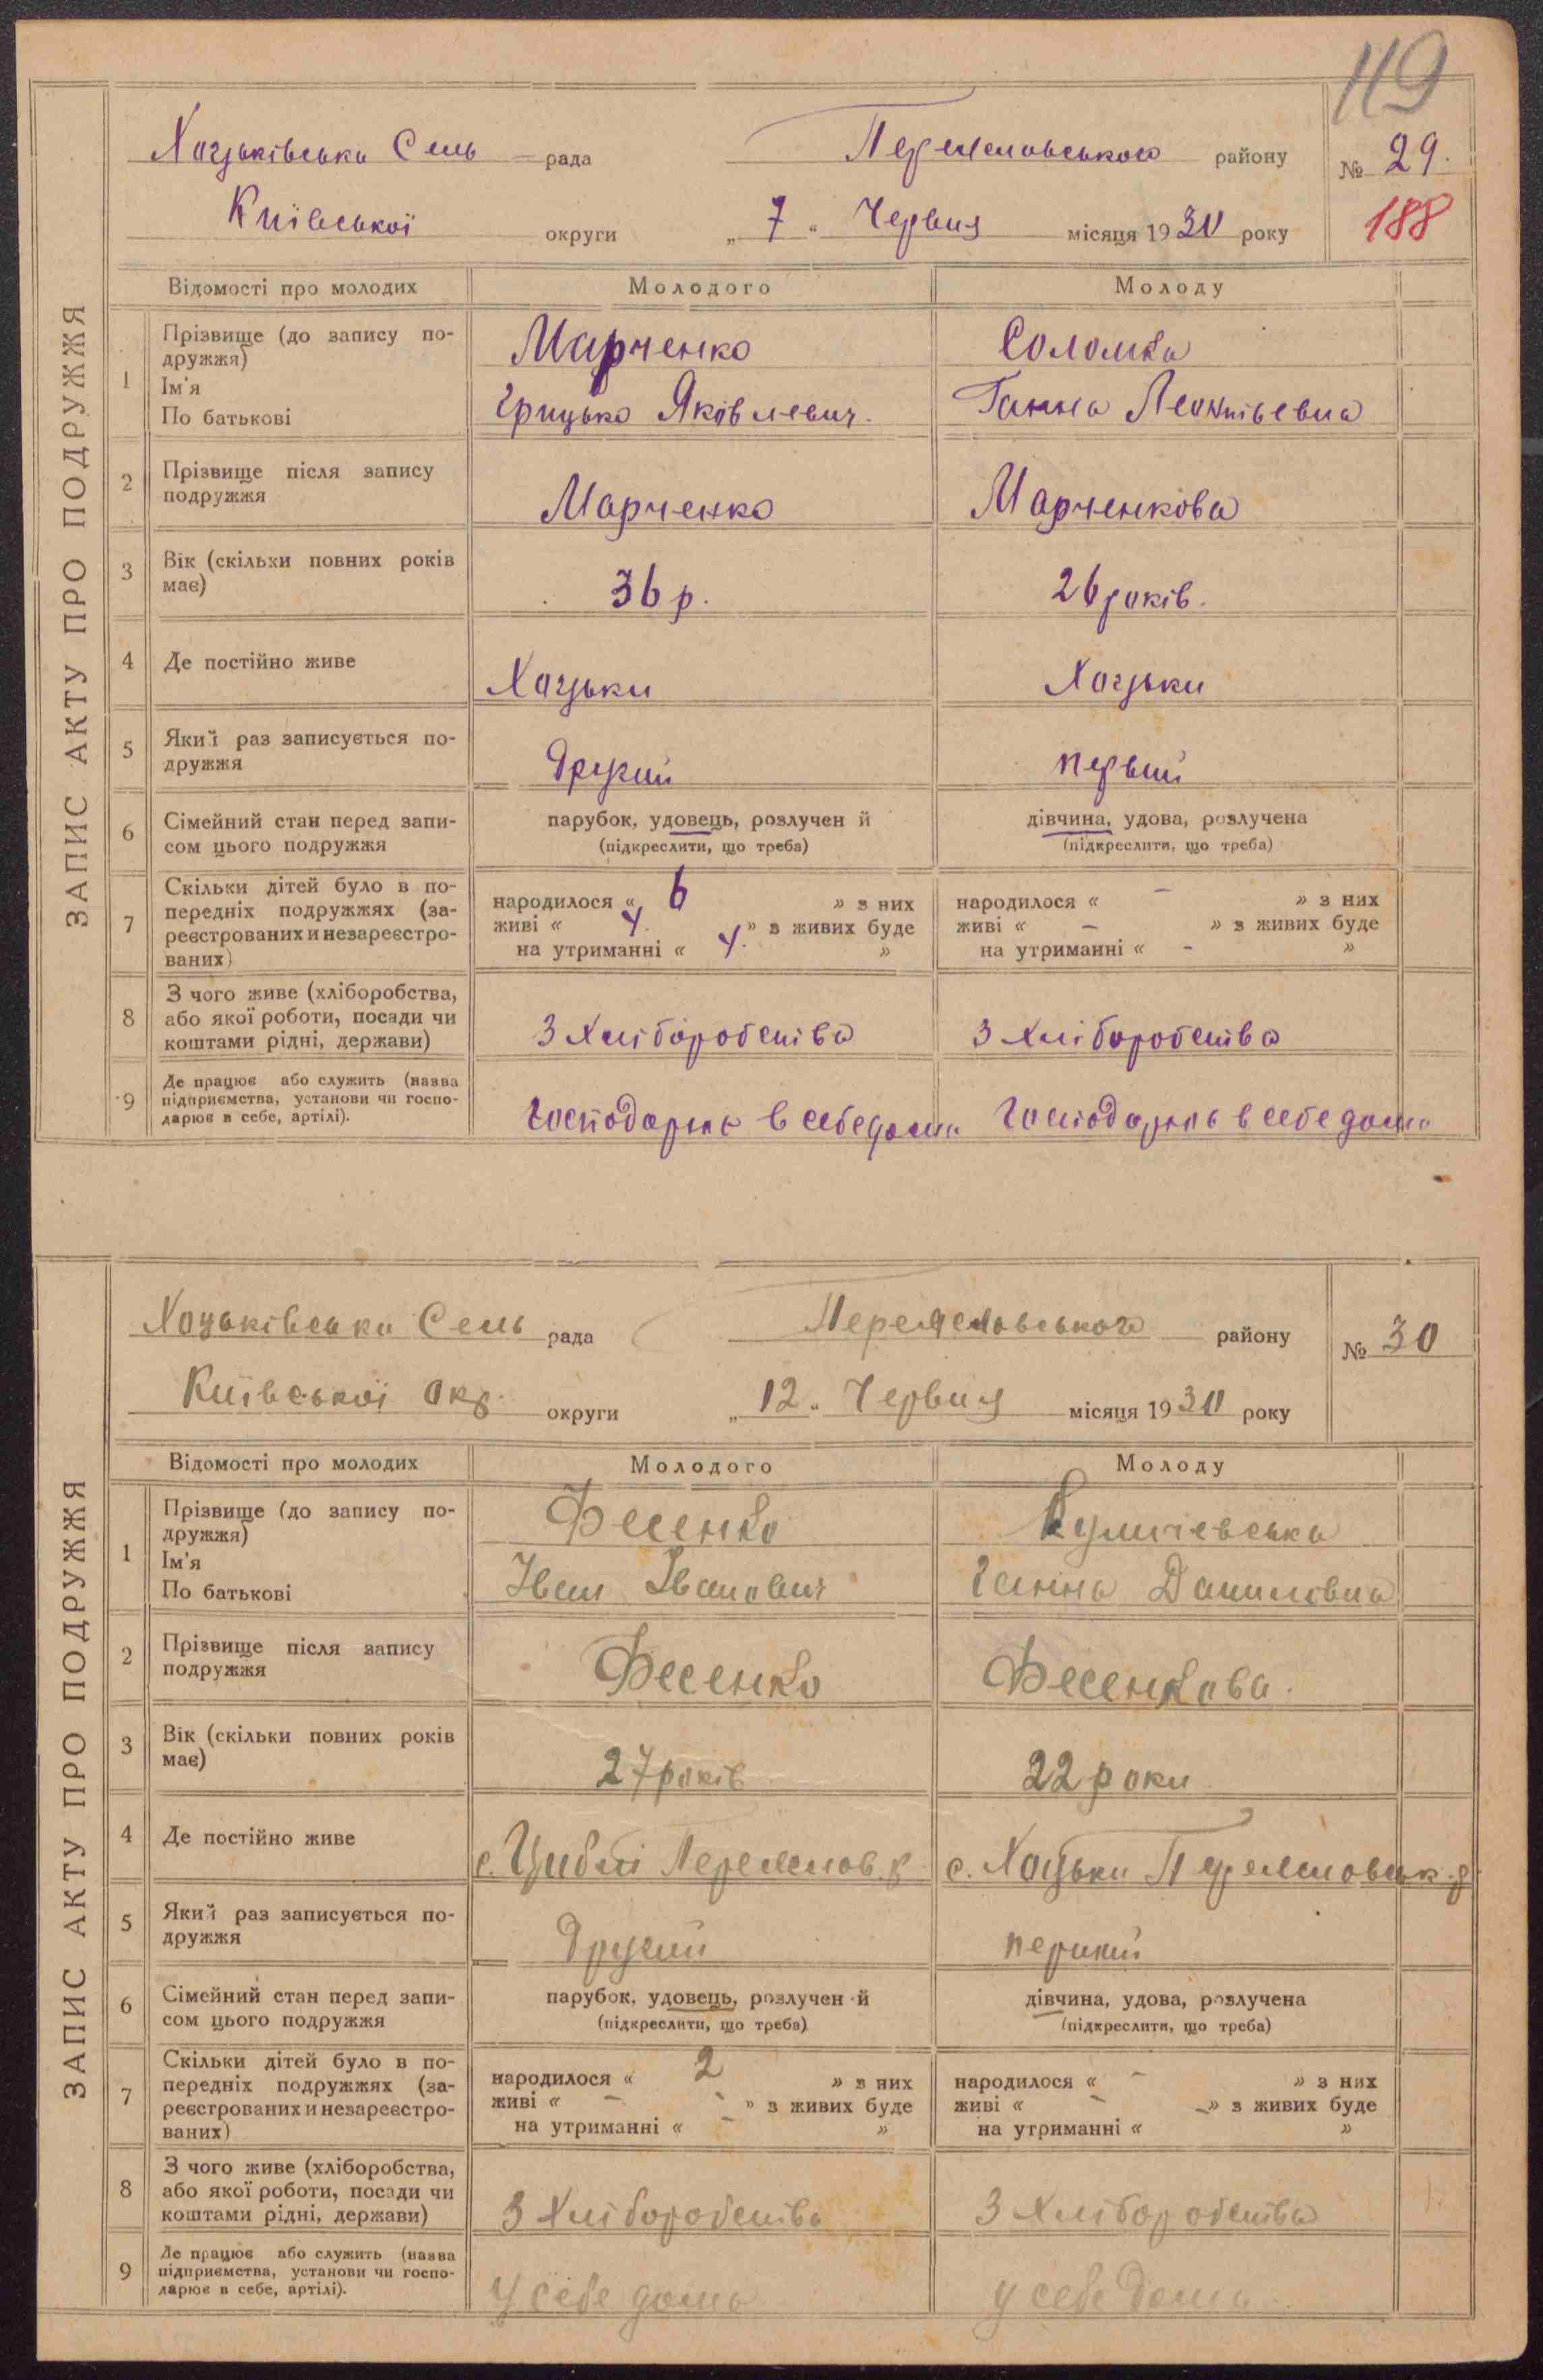 119
Хоцьківська Сель рада Переяславського району № 29.
Київської округи „ 7 “ Червня місяця 1930 року 188
ЗАПИС АКТУ ПРО ПОДРУЖЖЯ
Відомості про молодих Молодого Молоду
1 Прізвище (до запису по-
дружжя) Марченко Соломка
Ім'я
По батькові Грицько Яковлевич. Ганна Леонтіевна
2 Прізвище після запису
подружжя Марченко Марченкова
3 Вік (скільки повних років
має) 36 р. 26 років.
4 Де постійно живе Хоцьки Хоцьки
5 Який раз записується по-
дружжя Другий первий
6 Сімейний стан перед запи- парубок, удовець, розлучен й дівчина, удова, розлучена
сом цього подружжя (підкреслити, що треба) (підкреслити, що треба)
7 Скільки дітей було в по-
передніх подружжях (за- народилося « 6 » з них народилося « – » з них
реєстрованих и незареєстро- живі « 4. » з живих буде живі « – » з живих буде
ваних) на утриманні « 4. » на утриманні « - »
8 З чого живе (хліборобства,
або якої роботи, посади чи
коштами рідні, держави) З Хліборобства З Хліборобства
9 Де працює або служить (назва
підприємства, установи чи госпо-
дарює в себе, артілі). Господарює в себе дома Господарює в себе дома
Хоцьківська Сель рада Переяславського району № 30
Київської Окр. округи „ 12 “ Червня місяця 1930 року
ЗАПИС АКТУ ПРО ПОДРУЖЖЯ
Відомості про молодих Молодого Молоду
1 Прізвище (до запису по-
дружжя) Фесенко
Ім'я
По батькові Іван Іванович Ганна Данилівна
2 Прізвище після запису
подружжя Фесенко Фесенкова.
3 Вік (скільки повних років
має) 27 років 22 роки
4 Де постійно живе с. Циблі Переяслов. р с. Хоцьки Переясловськ. р
5 Який раз записується по-
дружжя Другий перший
6 Сімейний стан перед запи- парубок, удовець, розлучен й дівчина, удова, розлучена
сом цього подружжя (підкреслити, що треба) (підкреслити, що треба)
7 Скільки дітей було в по-
передніх подружжях (за- народилося « 2 » з них народилося « – » з них
реєстрованих и незареєстро- живі « – » з живих буде живі « – » з живих буде
ваних) на утриманні « – » на утриманні « »
8 З чого живе (хліборобства,
або якої роботи, посади чи
коштами рідні, держави) З Хліборобства З Хліборобства
9 Де працює або служить (назва
підприємства, установи чи госпо-
дарює в себе, артілі). У себе дома у себе дома